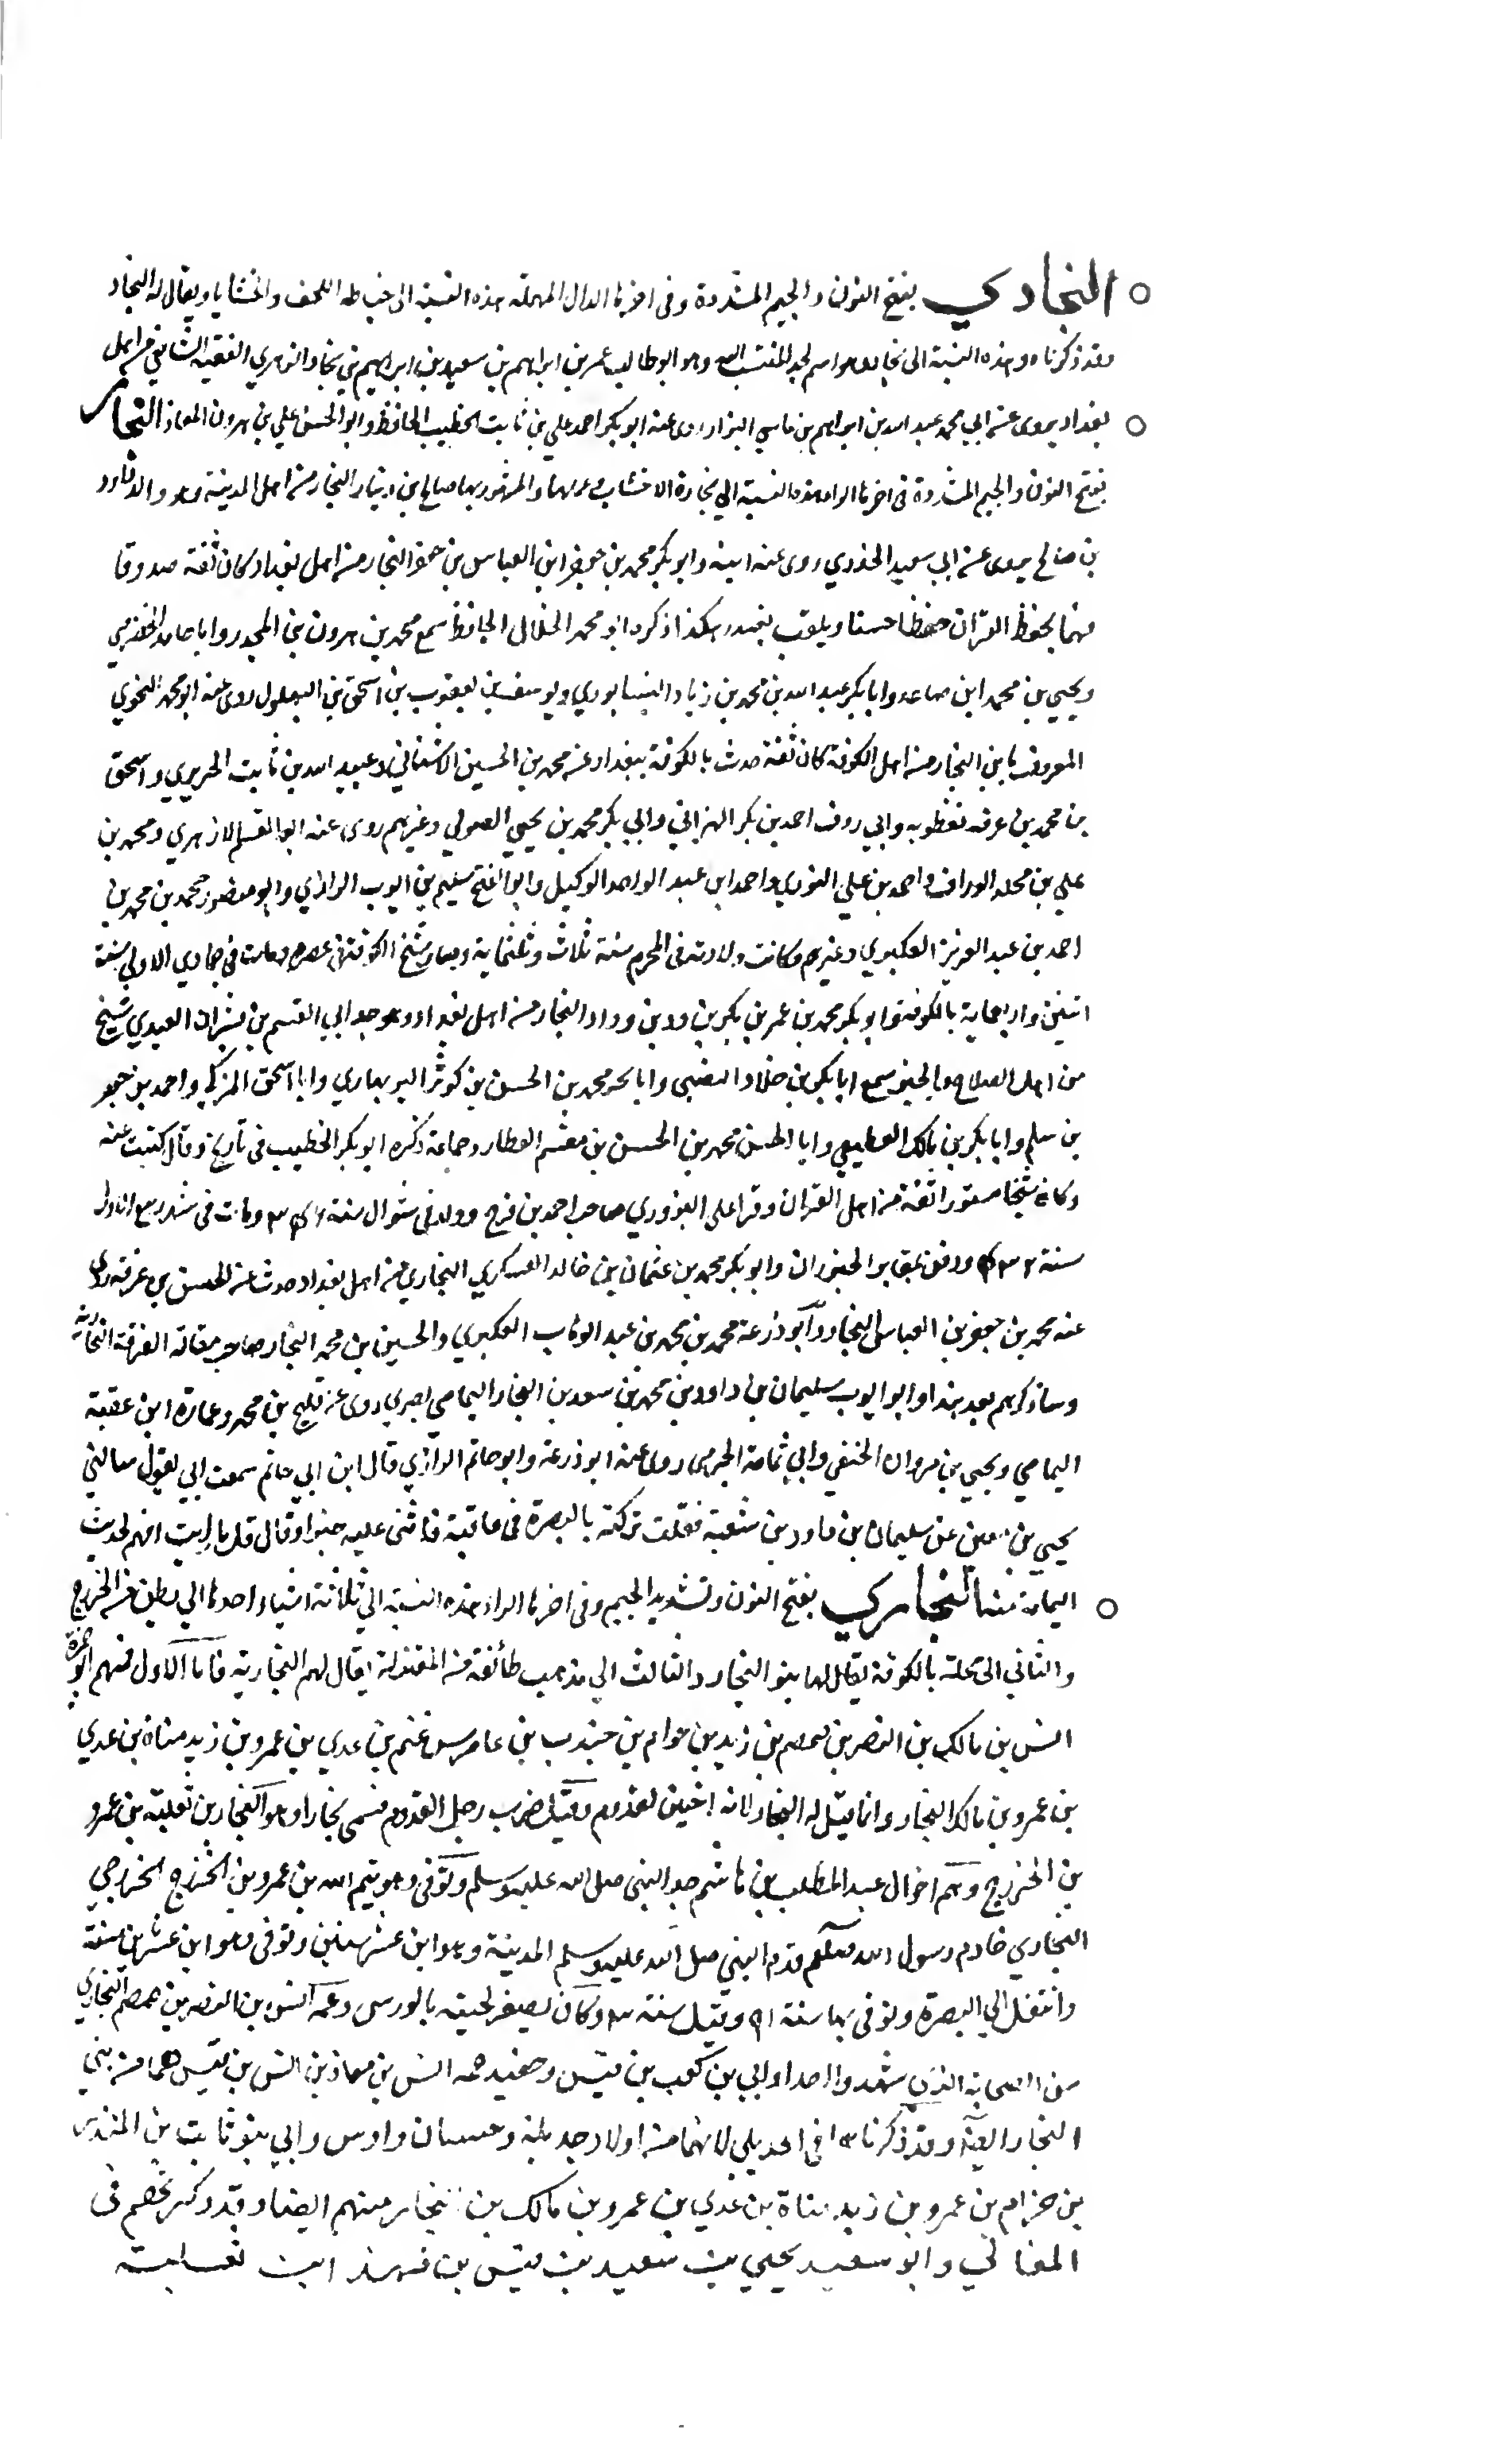 النجادي بفتح النون والجيم المشددة وفى اخرها الدال المهملة هذه النسبة الى خياطة اللحف والحشايا ويقال له النجاد
وقد ذكرناه وهذه النسبة الى نجاد وهو اسم لجد المنتسب اليه وهو ابو طالب عمر بن ابراهيم بن سعيد بن ابراهيم بن نجاد الزهري الفقيه الشافعي من اهل
بغداد يروى عن ابي محمد عبد الله بن ابراهيم بن ماسي البزار روى عنه ابو بكر احمد علي بن ثابت الخطيب الحافظ وابو الحسن علي بن هرون المعاذ النجار
بفتح النون والجيم المشددة فى اخرها الراء هذه النسبة الي نجارة الاخشاب وعملها والمشهور بها صالح بن دينار النجار من اهل المدينة وهو والد داود
بن صالح يروى عن ابي سعيد الخدري روى عنه ابنه وابو بكر محمد بن جعفر ابن العباس بن جعفر النجار من اهل بغداد كان ثقة صدوقا
فهما يحفظ القران حفظا حسنا ويلقب بغندر هكذا ذكره ابو محمد الخلال الحافظ سمع محمد بن هرون بن المجدر وابا حامد الحضرمي
ويحيي بن محمد ابن صاعد وابا بكر عبد الله بن محمد بن زياد النيسابوري ويوسف بن يعقوب بن اسحق بن البهلول روى عنه ابو محمد النحوي
المعروف بابن النجار من اهل الكوفة كان ثقة حدث بالكوفة ببغداد عن محمد بن الحسين الاشناني وعبيد الله بن ثابت الحريري واسحق
بن محمد بن عرفه نفطويه وابي روق احمد بن بكر الهزاني وابي بكر محمد بن يحيي الصولي وغيرهم روى عنه ابو القسم الازهري ومحمد بن
علي بن مخلد الوراق واحمد بن علي التوزي واحمد ابن عبد الواحد الوكيل وابو الفتح سليم بن ايوب الرازي وابو منصور محمد بن محمد بن
احمد بن عبد العزيز العكبري وغيرهم وكانت ولادته فى المحرم سنة ثلاث وثلثماية وصار شيخ الكوفة في عصره ومات فى جمادي الاولي سنة
اثنين واربعماية بالكوفة وابو بكر محمد بن عمر بن بكير بن ود بن وداد النجار من اهل بغداد وهو جد ابي القسم بن بشران العبدي شيخ
من اهل الصلاح والخير سمع ابا بكر بن خلاد النصيبي وابا بحر محمد بن الحسن بن كوثر البربهاري وابا اسحق المزكي واحمد بن جعفر
بن سلم وابا بكر بن مالك القطيعي وابا الحسن محمد بن الحسن بن مقسم العطار وجماعة ذكره ابو بكر الخطيب فى تاريخ وقال كتبت عنه
وكان شيخا مستورا ثقة من اهل القران وقرا على البزوري صاحب احمد بن فرح وولد فى شوال سنة ومات فى شهر ربيع الاول
سنة ودفن بمقابر الخيزران وابو بكر محمد بن عثمان بن خالد العسكري النجاري من اهل بغداد حدث عن الحسن بن عرفه روى
عنه محمد بن جعفر بن العباس النجار وابو ذرعة محمد بن محمد بن عبد الوهاب العكبري والحسين بن محمد النجار صاحب مقالة الفرقة النجارية
وساذكرهم بعد هذا وابو ايوب سليمان بن داود بن محمد بن سعد بن النجار اليمامي بصري روى عن فليح بن محمد وعمارة ابن عقبة
اليمامي ويحيي بن مروان الحنفي وابي ثمامة الجرمي روى عنه ابو ذرعة وابو حاتم الرازي قال ابن ابي حاتم سمعت ابي يقول سالني
يحيي بن معين عن سليمان بن داود بن شعبة فقلت تركته بالبصرة فى عافية فاثنى عليه خيرا وقال قل ما رايت افهم لحديث
اليمامة منه النجاري بفتح النون وتشديد الجيم وفى اخرها الراء هذه النسبة الي ثلاثة اشياء احدها الي بطن من الخزرج
والثاني الى محلة بالكوفة يقال لها بنو النجار والثالث الي مذهب طائفة من المعتزلة يقال لهم النجارية فاما الاول فمنهم ابو حمزة
انس بن مالك بن النضر بن ضمضم بن زيد بن حرام بن جندب بن عامر بن غنم بن عدي بن عمرو بن زيد مناة بن عدي
بن عمرو بن مالك النجار وانما قيل له النجار لانه اختتن بقدوم وقيل ضرب رجل القدوم فسمى نجارا وهو النجار بن ثعلبة بن عمرو
بن الخزرج وهم اخوال عبد المطلب بن هاشم جد النبي صلى الله عليه وسلم وتوفى وهو تيم الله بن عمرو بن الخزرج الخزرجي
النجاري خادم رسول الله صلعم قدم النبي صلى الله عليه وسلم المدينة وهو ابن عشر سنين وتوفى وهو ابن عشرين سنة
وانتقل الي البصرة وتوفى بها سنة ٩١ وقيل سنة وكان يصفر لحيته بالورس وعمه انس بن النضر بن ضمضم النجاري
من الصحابة الذين شهدوا احدا وابي بن كعب بن قيس وحفيد عمه انس بن معاذ بن انس بن قيس هما من بني
النجار ايضا وقد ذكرناهما فى الجديلي لانهما من اولاد جديلة وحسان واوس وابي بنو ثابت بن المنذر
بن حزام بن عمرو بن زيد مناة بن عدي بن عمرو بن مالك بن النجار منهم ايضا وقد ذكرتهم فى
المغالي وابو سعيد يحيي بن سعيد بن قيس بن فهد ابن ثعلبة